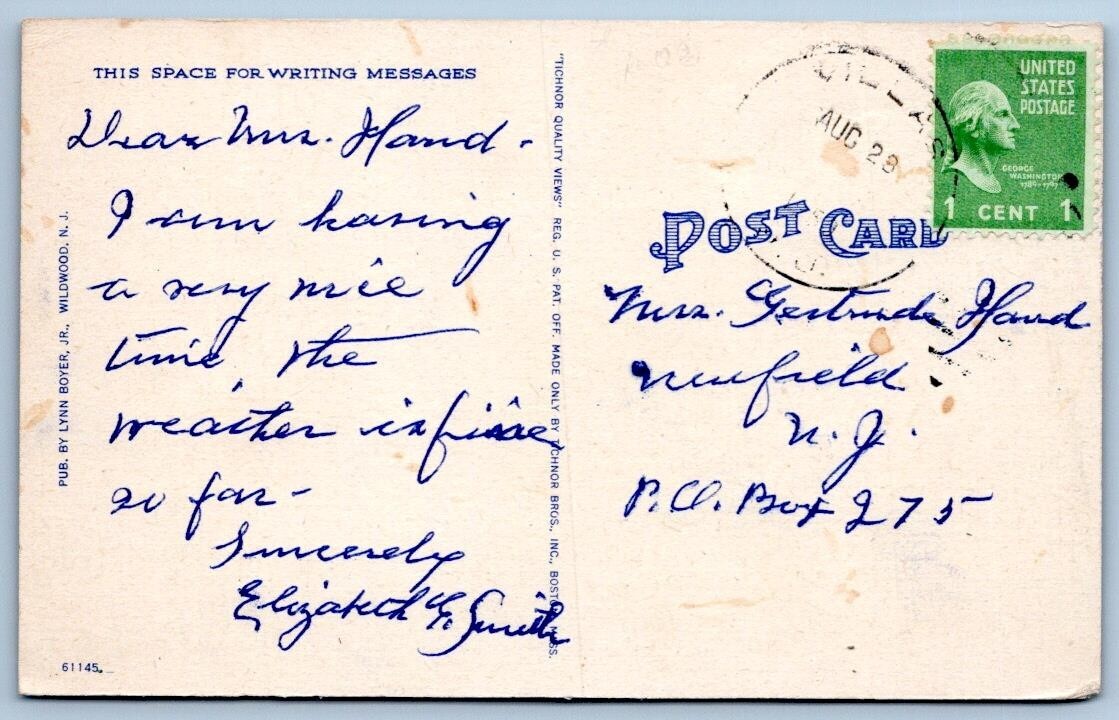 THIS SPACE FOR WRITING MESSAGES
Dear Mrs. Hand -
I am having
a very nice
time, the
weather is fine
so far -
Sincerely
Elizabeth G. Smith
61145.
PUB. BY LYNN BOYER, JR., WILDWOOD, N. J.
"TICHNOR QUALITY VIEWS" REG. U. S. PAT. OFF. MADE ONLY BY TICHNOR BROS., INC., BOSTON, MASS.
POST CARD
VILLAS
AUG 28
N.J.
UNITED
STATES
POSTAGE
GEORGE
WASHINGTON
1789-1797
1 CENT 1
Mrs. Gertrude Hand
Newfield
N. J.
P.O. Box 275